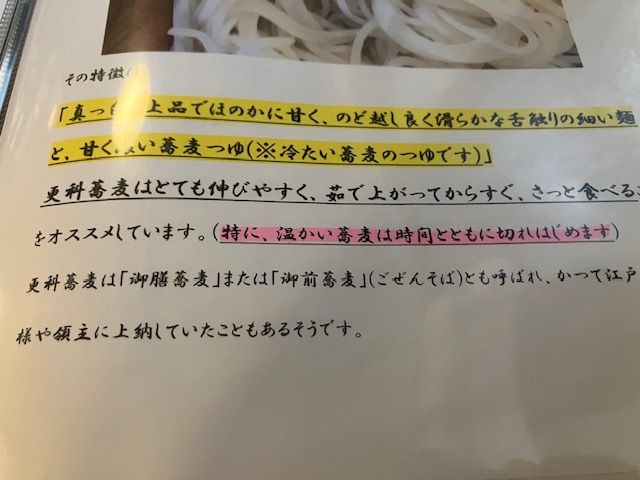 その特徴は
「真っ 上品でほのかに甘く、のど越し良く滑らかな舌触りの細い麺
と、甘く 濃い蕎麦つゆ(※冷たい蕎麦のつゆです)」
更科蕎麦はとても伸びやすく、茹で上がってからすぐ、さっと食べるこ
をオススメしています。(特に、温かい蕎麦は時間とともに切れはじめます)
更科蕎麦は「御膳蕎麦」または「御前蕎麦」(ごぜんそば)とも呼ばれ、かつて江戸
様や領主に上納していたこともあるそうです。